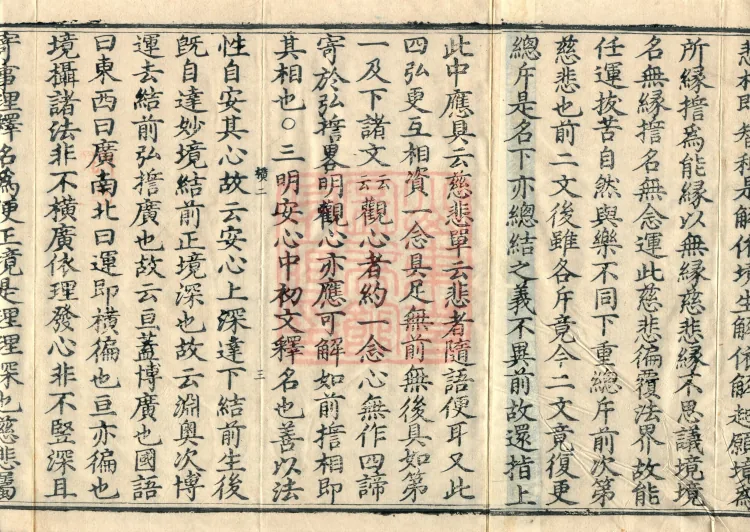 所緣擔為能緣以無緣慈悲緣不思議境境
名無緣擔名無念運此慈悲徧覆法界故能
任運拔苦自然與樂不同下重總斥前次第
慈悲也前二文後雖各斥竟今二文竟復更
總斥是名下亦總結之義不異前故還指上
此中應具云慈悲單云悲者隨語便耳又此
四弘更互相資一念具足無前無後具如第
一及下諸文云云觀心者約一念心無作四諦
寄於弘擔畧明觀心亦應可解如前擔相即
其相也○三明安心中初文釋名也善以法
性自安其心故云安心上深達下結前生後
既自達妙境結前正境深也故云淵奧次博
運去結前弘擔廣也故云亘蓋博廣也國語
曰東西曰廣南北曰運即橫徧也亘亦徧也
境攝諸法非不橫廣依理發心非不豎深且
寄事理釋名為便正竟是理理深也慈悲屬
三